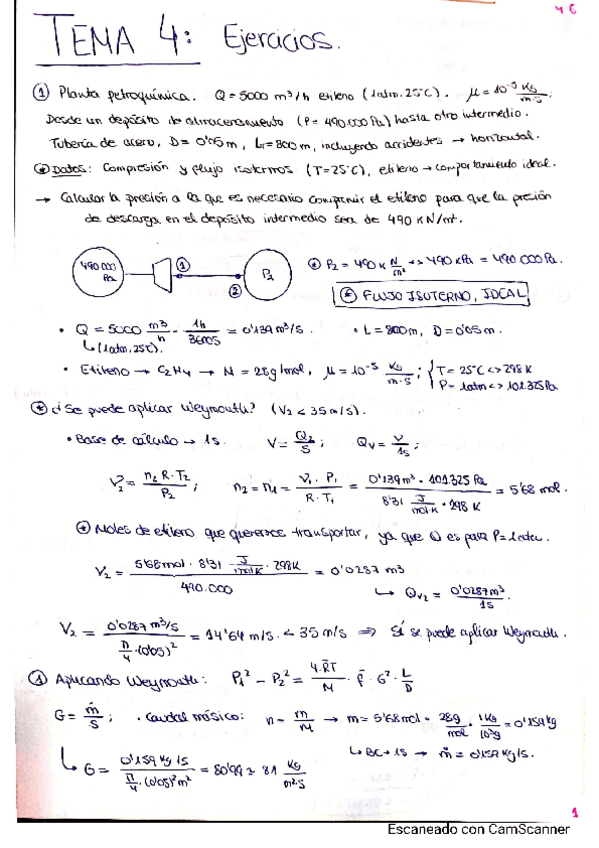 4 6
TEMA 4: Ejercicios.
① Planta petroquímica. Q = 5000 m³/h etileno (1atm, 25ºC). μ = 10⁻⁵ Kg/m·s;
Desde un depósito de almacenamiento (P = 490.000 Pa) hasta otro intermedio.
Tubería de acero, D = 0'05 m, L = 800 m, incluyendo accidentes → horizontal.
Datos: Compresión y flujo isotermos (T = 25ºC), etileno → comportamiento ideal.
→ Calcular la presión a la que es necesario comprimir el etileno para que la presión
de descarga en el depósito intermedio sea de 490 KN/m².
490 000 Pa
①
②
P₂
P₂ = 490 K N/m² <-> 490 KPa = 490 000 Pa.
FLUJO ISOTERMO, IDEAL
• Q = 5000 m³/h · 1h/3600s = 0'139 m³/s.
↳ (1atm, 25ºC).
• L = 800m, D = 0'05 m.
• Etileno → C₂H₄ → M = 28g/mol, μ = 10⁻⁵ Kg/m·s; { T = 25ºC <-> 298 K
P = 1atm <-> 101.325 Pa
¿Se puede aplicar Weymouth? (V₂ < 35 m/s).
• Base de cálculo → 1s. V = Q₂/S; Qv = V/1s;
V₂ = n₂ R·T₂/P₂; n₂ = n₁ = V₁·P₁/R·T₁ = 0'139 m³ · 101.325 Pa/8'31 J/mol·K · 298 K = 5'68 mol.
Moles de etileno que queremos transportar, ya que Q es para P = 1atm.
V₂ = 5'68 mol · 8'31 J/mol·K · 298K/490.000 = 0'0287 m³
↳ Qv₂ = 0'0287 m³/1s
V₂ = 0'0287 m³/s/π/4·(0'05)² = 14'64 m/s. < 35 m/s ⇒ Sí se puede aplicar Weymouth.
① Aplicando Weymouth: P₁² - P₂² = 4·RT/M · f · G² · L/D
G = ṁ/S; • Caudal másico: n = m/M → m = 5'68 mol · 28g/mol · 1 Kg/10³g = 0'159 kg
↳ BC → 1s → ṁ = 0'159 Kg/s.
↳ G = 0'159 Kg/s/π/4·(0'05)² m² = 80'99 ≃ 81 Kg/m²·s
1
Escaneado con CamScanner